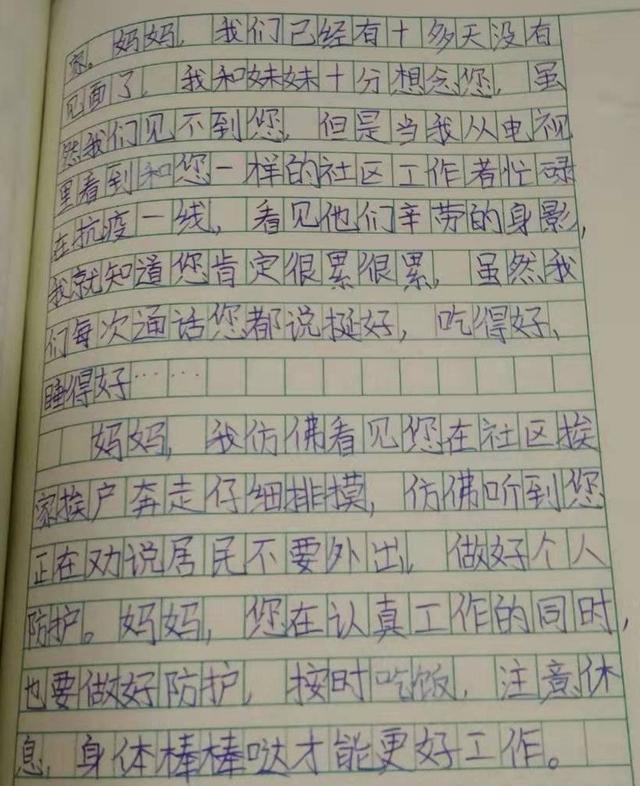 您。妈妈，我们已经有十多天没有
见面了，我和妹妹十分想念您，虽
然我们见不到您，但是当我从电视
里看到和您一样的社区工作者忙碌
在抗疫一线，看见他们辛劳的身影，
我就知道您肯定很累很累，虽然我
们每次通话您都说挺好，吃得好、
睡得好……
妈妈，我仿佛看见您在社区挨
家挨户奔走仔细排摸，仿佛听到您
正在劝说居民不要外出，做好个人
防护。妈妈，您在认真工作的同时，
也要做好防护，按时吃饭，注意休
息，身体棒棒哒才能更好工作。